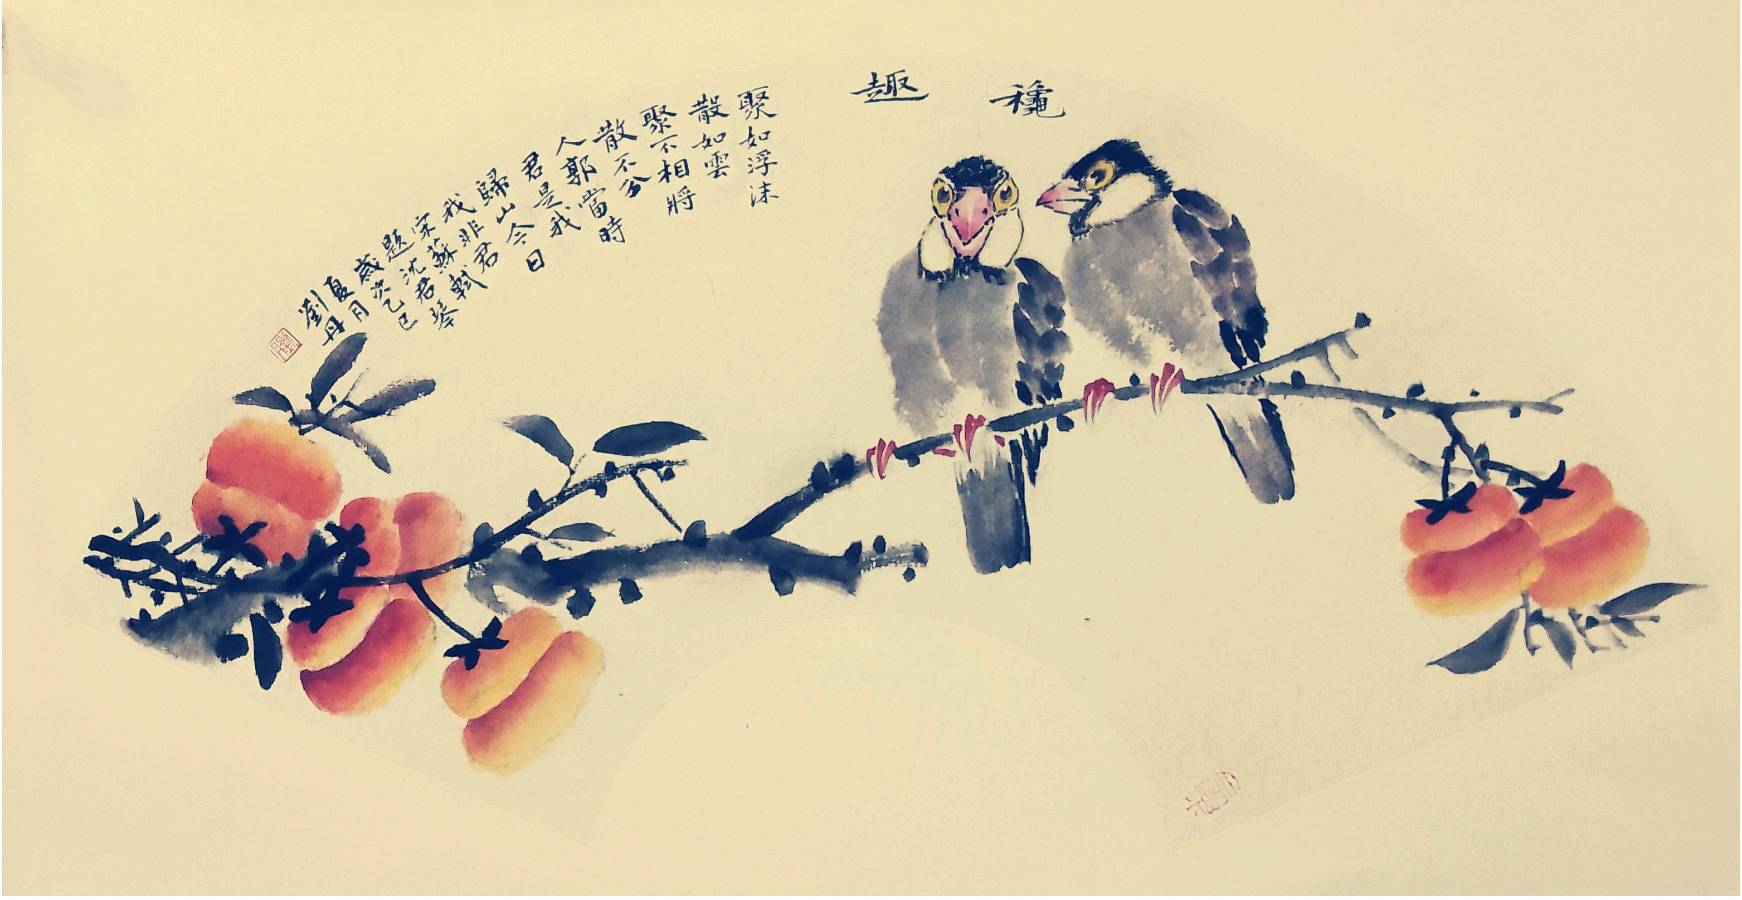 穐趣
聚如浮沫
散如雲
聚不相將
散不分
人郭當時
君是我
歸山今日
我非君
宋蘇軾
題沈君琴
歲次乙巳
夏月
劉丹